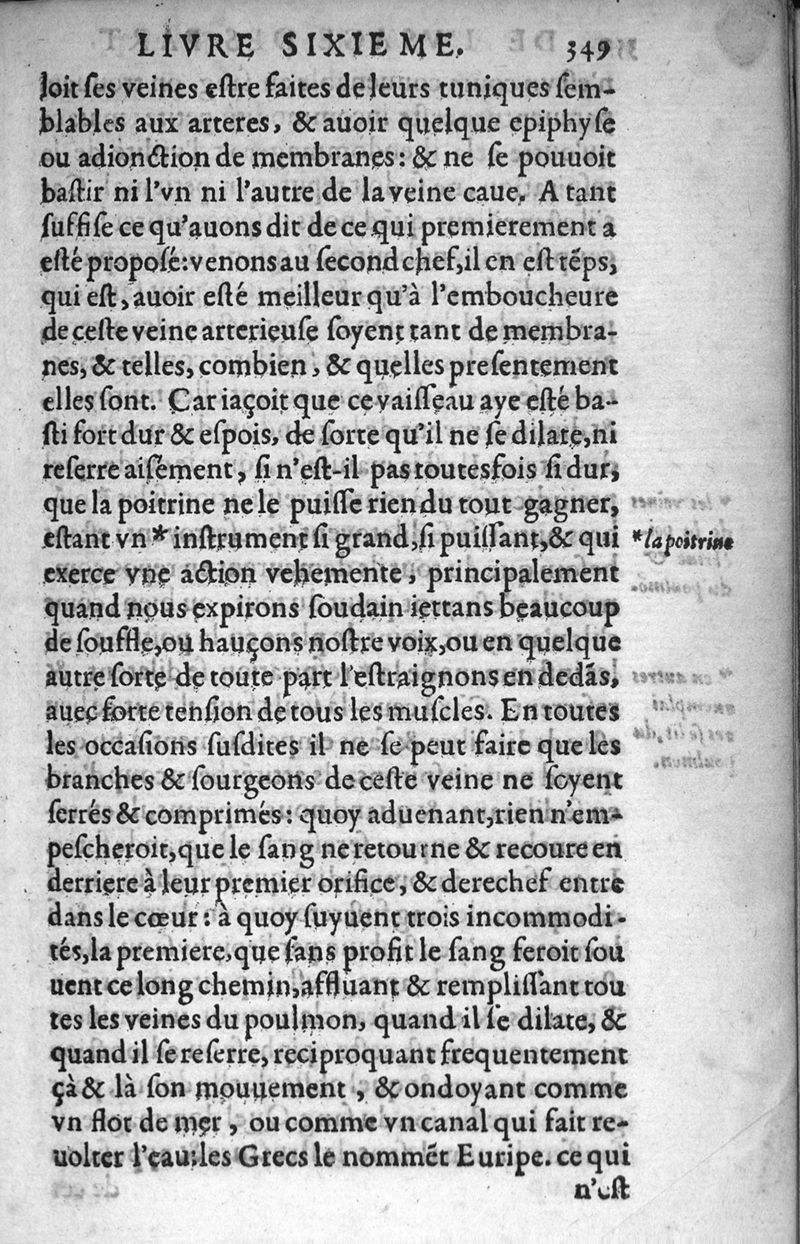 LIVRE SIXIEME. 349
loit ſes veines eſtre faites de leurs tuniques ſem-
blables aux arteres, & auoir quelque epiphyſe
ou adionction de membranes: & ne ſe pouuoit
baſtir ni l'vn ni l'autre de la veine caue. A tant
ſuffiſe ce qu'auons dit de ce qui premierement a
eſté propoſé: venons au ſecond chef, il en eſt tẽps,
qui eſt, auoir eſté meilleur qu'à l'emboucheure
de ceſte veine arterieuſe ſoyent tant de membra-
nes, & telles, combien, & quelles preſentement
elles ſont. Car iaçoit que ce vaiſſeau aye eſté ba-
ſti fort dur & eſpois, de ſorte qu'il ne ſe dilate, ni
reſerre aiſement, ſi n'eſt-il pas toutesfois ſi dur,
que la poitrine ne le puiſſe rien du tout gagner,
eſtant vn * inſtrument ſi grand, ſi puiſſant, & qui *la poitrine
exerce vne action vehemente, principalement
quand nous expirons ſoudain iettans beaucoup
de ſouffle, ou hauçons noſtre voix, ou en quelque
autre ſorte de toute part l'eſtraignons en dedãs,
auec forte tenſion de tous les muſcles. En toutes
les occaſions ſuſdites il ne ſe peut faire que les
branches & ſourgeons de ceſte veine ne ſoyent
ſerrés & comprimés: quoy aduenant, rien n'em-
peſcheroit, que le ſang ne retourne & recoure en
derriere à leur premier orifice, & derechef entre
dans le cœur: à quoy ſuyuent trois incommodi-
tés, la premiere, que ſans profit le ſang feroit ſou
uent ce long chemin, affluant & rempliſſant tou
tes les veines du poulmon, quand il ſe dilate, &
quand il ſe reſerre, reciproquant frequentement
çà & là ſon mouuement, & ondoyant comme
vn flot de mer, ou comme vn canal qui fait re-
uolter l'eau: les Grecs le nommẽt Euripe. ce qui
n'eſt